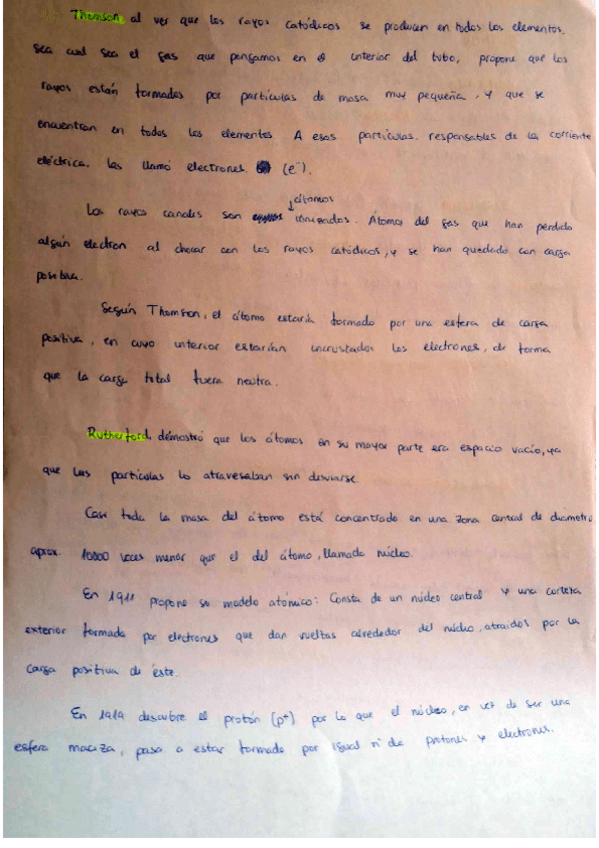 Thomson al ver que los rayos catódicos se producen en todos los elementos,
sea cual sea el gas que pongamos en el interior del tubo, propone que los
rayos están formados por partículas de masa muy pequeña, y que se
encuentran en todos los elementos. A esas partículas, responsables de la corriente
eléctrica, las llamó electrones (e⁻).
átomos
Los rayos canales son ionizados. Átomos del gas que han perdido
algún electron al chocar con los rayos catódicos, y se han quedado con carga
positiva.
Según Thomson, el átomo estaría formado por una esfera de carga
positiva, en cuyo interior estarían incrustados los electrones, de forma
que la carga total fuera neutra.
Rutherford, demostró que los átomos en su mayor parte era espacio vacío, ya
que las partículas lo atravesaban sin desviarse.
Casi toda la masa del átomo está concentrado en una zona central de diámetro
aprox. 10000 veces menor que el del átomo, llamada núcleo.
En 1911 propone su modelo atómico: Consta de un núcleo central y una corteza
exterior formada por electrones que dan vueltas alrededor del núcleo, atraídos por la
carga positiva de éste.
En 1919 descubre el protón (p⁺) por lo que el núcleo, en vez de ser una
esfera maciza, pasa a estar formado por igual nº de protones y electrones.